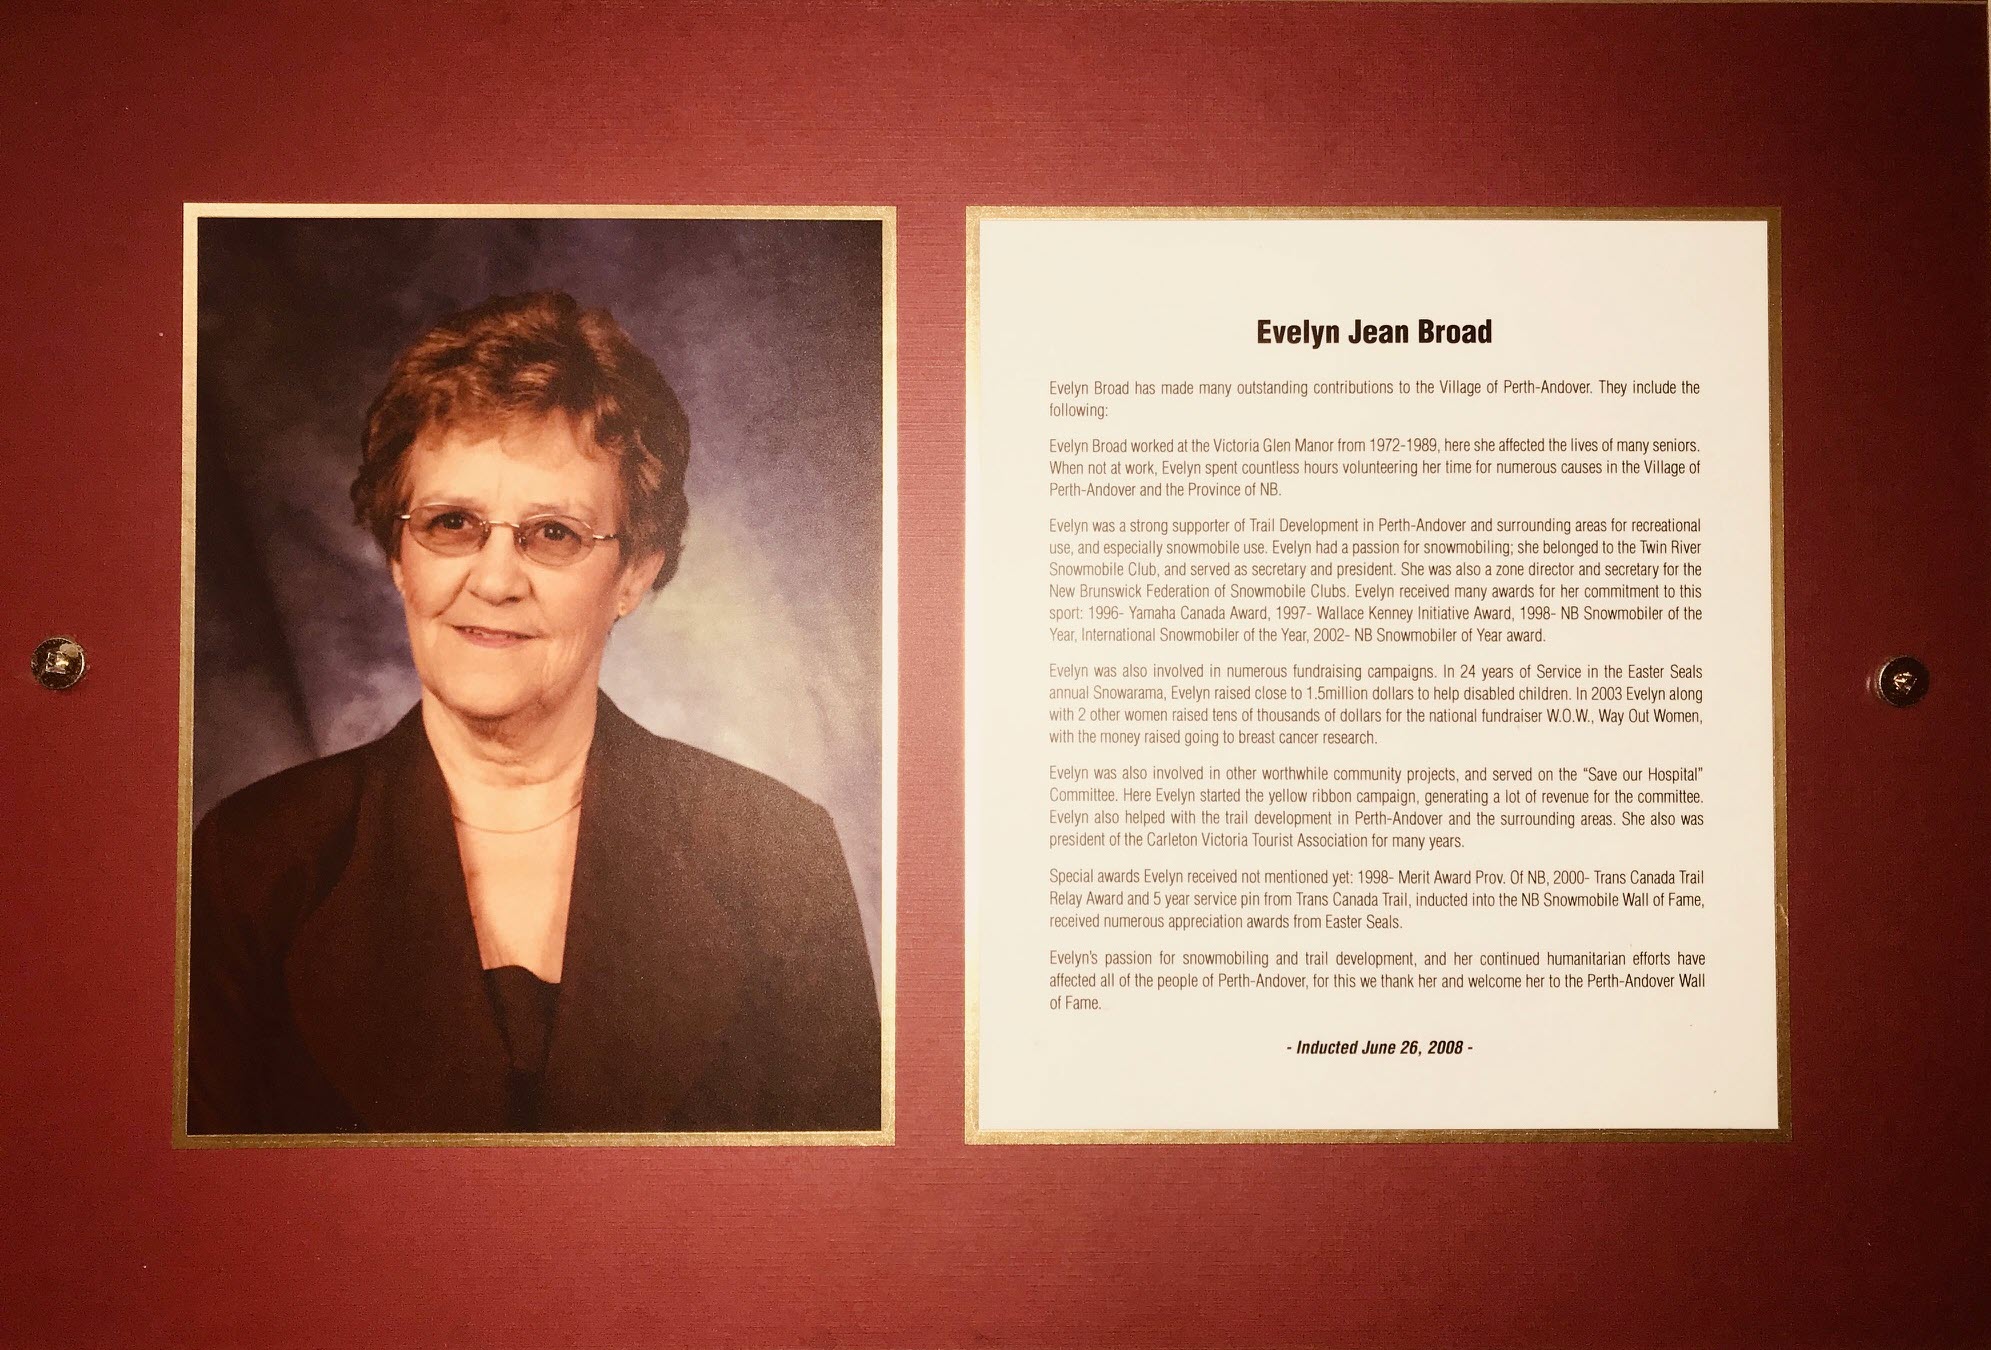 Evelyn Jean Broad
Evelyn Broad has made many outstanding contributions to the Village of Perth-Andover. They include the
following:
Evelyn Broad worked at the Victoria Glen Manor from 1972-1989, here she affected the lives of many seniors.
When not at work, Evelyn spent countless hours volunteering her time for numerous causes in the Village of
Perth-Andover and the Province of NB.
Evelyn was a strong supporter of Trail Development in Perth-Andover and surrounding areas for recreational
use, and especially snowmobile use. Evelyn had a passion for snowmobiling; she belonged to the Twin River
Snowmobile Club, and served as secretary and president. She was also a zone director and secretary for the
New Brunswick Federation of Snowmobile Clubs. Evelyn received many awards for her commitment to this
sport: 1996- Yamaha Canada Award, 1997- Wallace Kenney Initiative Award, 1998- NB Snowmobiler of the
Year, International Snowmobiler of the Year, 2002- NB Snowmobiler of Year award.
Evelyn was also involved in numerous fundraising campaigns. In 24 years of Service in the Easter Seals
annual Snowarama, Evelyn raised close to 1.5million dollars to help disabled children. In 2003 Evelyn along
with 2 other women raised tens of thousands of dollars for the national fundraiser W.O.W., Way Out Women,
with the money raised going to breast cancer research.
Evelyn was also involved in other worthwhile community projects, and served on the “Save our Hospital”
Committee. Here Evelyn started the yellow ribbon campaign, generating a lot of revenue for the committee.
Evelyn also helped with the trail development in Perth-Andover and the surrounding areas. She also was
president of the Carleton Victoria Tourist Association for many years.
Special awards Evelyn received not mentioned yet: 1998- Merit Award Prov. Of NB, 2000- Trans Canada Trail
Relay Award and 5 year service pin from Trans Canada Trail, inducted into the NB Snowmobile Wall of Fame,
received numerous appreciation awards from Easter Seals.
Evelyn's passion for snowmobiling and trail development, and her continued humanitarian efforts have
affected all of the people of Perth-Andover, for this we thank her and welcome her to the Perth-Andover Wall
of Fame.
- Inducted June 26, 2008 -